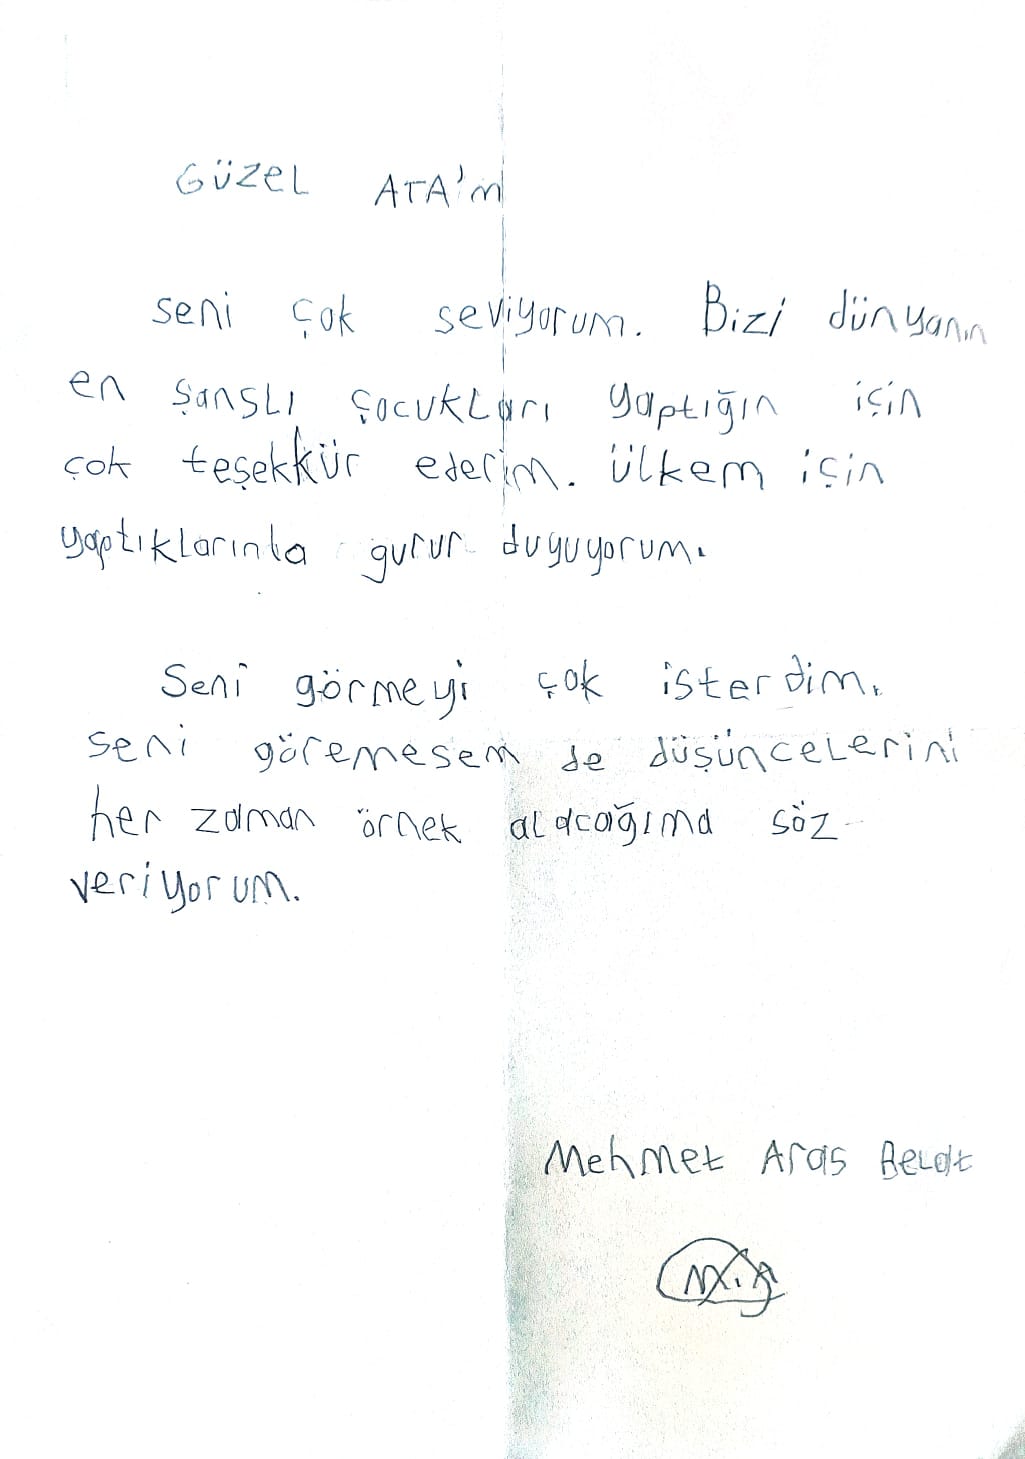 GÜZEL ATA'm
seni çok seviyorum. Bizi dünyanın
en şanslı çocukları yaptığın için
çok teşekkür ederim. ülkem için
yaptıklarınla gurur duyuyorum.
Seni görmeyi çok isterdim.
seni göremesem de düşüncelerini
her zaman örnek alacağıma söz
veriyorum.
Mehmet Aras Belat